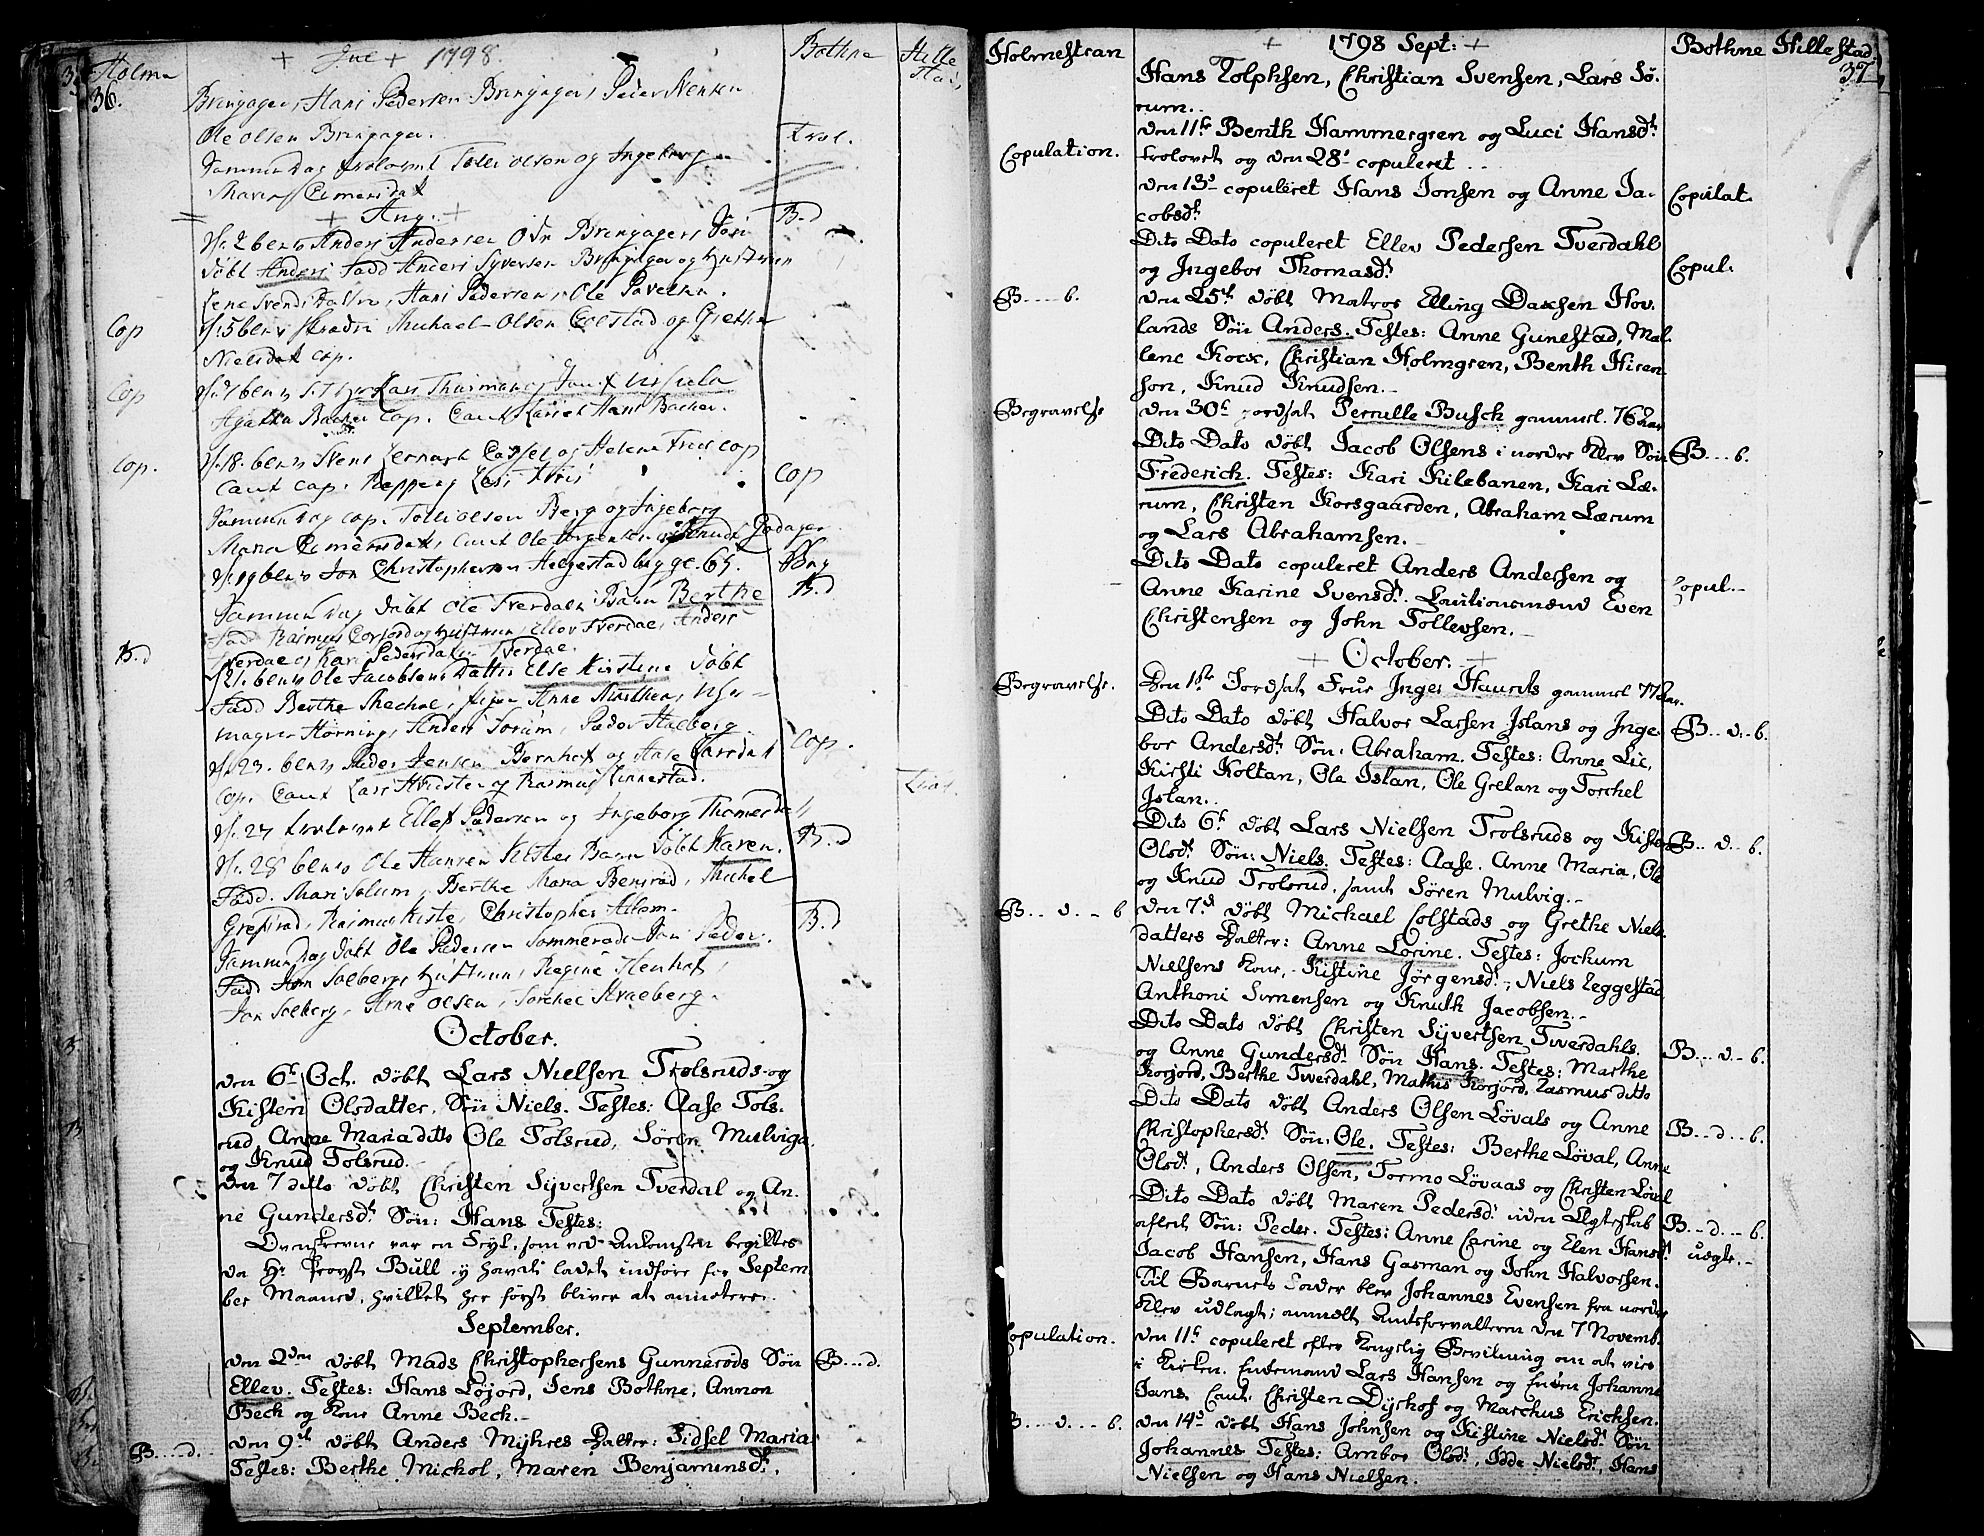 Holm
36.
+ Jul + 1798.
Bothne
Hille
stad
Bringager, Hans Pedersen Bringager, Peder
Ole Olsen Bringager.
Trol.
Samme Dag trolovet Tolli Olsen og Ingeborg
Maria Elmersdat
+ Aug. +
B. d
Anders Andersen Bringagers Søn
døbt Anders Fadd Anders Syversen Bringager og Hustruen
Lene Svends Datter, Hans Pedersen, Ole Pavelsen.
Cop
Michael Olsen Colstad og Grethe
Nielsdat cop.
Cop
Lars Thurmann Ursula
Agatha Backer cop. Caut Hans Backer.
Cop.
d. 18. Svend Lennart Cassel og Helena cop
Caut cap.
Cop
Samme Dag cop. Tolli Olsen Berg og Ingeborg
Maria Elmersdat, Caut Ole Jørgensen og Knud Gadager
d. 19 Jon Christophersen Helgestad beg gl. 65.
Beg
Samme Dag døbt Ole Tverdals Barn Berthe
B. d
Fadd Rasmus Corsjord og Hustrue, Ellev Tverdal, Anders
Tverdal, Kari Pedersdatter Tverdal.
B. d
d. 21. Ole Jacobsens Datter Else Kirstine døbt
Fadd Berthe Mechol, Anne
Horning, Anders Sorum, Peder Stalberg
Cop.
d. 23. Peder Jensen Bernhoft og Aase Larsdat
cop. Caut Lars og Rasmus Linnestad.
Trol.
d. 27 trolovet Ellef Pedersen og Ingeborg Thomesdatt
d. 28 Ole Hansen Kistes Barn døbt Karen.
B. d
Fadd. Mari Solum, Berthe Maria Bensrød, Michel
Grefsrød, Rasmus Kiste, Christopher
Samme Dag døbt Ole Pedersen Sommerøds Søn Peder.
B. d
Fadd Jon Solbergs Hustrue, Regine
Jon Solberg, Arne Olsen, Torchel Straeberg.
October.
den 6t. Oct. døbt Lars Nielsen Trolsruds og
Kisten Olsdatter, Søn Niels. Testes: Aase Tols-
rud, Anne Maria ditto Ole Tolsrud, Søren Mulviga
og Knud Tolsrud.
den 7 ditto døbt Christen Sijvertsen Tverdal og An-
ne Gundersd: Søn: Hans Testes:
Ovenskrevne var en Feyl, som ved Ankomsten begikkes
da Hr. Provst Bull ey havde ladet indføre for Septem
ber Maaned, hvilket her først bliver at annotere.
September.
den 2den døbt Mads Christophersens Gunnerøds Søn
B...d.
Ellev. Testes: Hans Løjord, Jens Bothne, Annon
Beck og Kone Anne Beck.
den 9d døbt Anders Mijhres Datter: Sidsel Maria
B...d.
Testes: Berthe Michol, Maren Benjaminsd:
Holmestran
+ 1798 Sept: +
Bothne Hillestad
37
Hans Tolphsen, Christian Svensen, Lars Sø-
rum.
den 11t Benth Hammergren og Luci Hansd:
Copulation.
trolovet og den 28: copuleret
den 13d copuleret Hans Jonsen og Anne Ja-
Copulat.
cobsd:
Dito Dato copuleret Ellev Pedersen Tverdahl
og Ingebor Thomasd:
Copul.
B....b.
den 25t døbt Matros Elling Daxsen Hov-
lands Søn Anders. Testes: Anne Gunestad, Mal-
lene Koex, Christian Holmgren, Benth Hiren-
son, Knud Knudsen.
Begravelse
den 30t jordsat Pernille Busch gammel 76 aar
Dito Dato døbt Jacob Olsens i nordre Klev Søn
B...b.
Frederick. Testes: Kari Kilebanen, Kari Læ-
rum, Christen Korsgaarden, Abraham Lærum
og Lars Abrahamsen.
Dito Dato copuleret Anders Andersen og
Copul.
Anne Karine Svensd: Cautionsmænd Even
Christensen og John Tollevsen.
+ October. +
Begravelse.
Den 1ste Jordsat Frue Inger Hauerts gammel 77 aar.
Dito Dato døbt Halvor Larsen Islans og Inge-
B...d..b.
bor Andersd: Søn: Abraham. Testes: Anne Lie,
Kirsti Koltan, Ole Islan, Ole Grelan og Torchel
Islan.
Dito 6t døbt Lars Nielsen Trolsruds og Kisten
B...d..b.
Olsd: Søn: Niels. Testes: Aase. Anne Maria, Ole
og Knud Trolsrud, samt Søren Mulvig.
B...d...b
den 7d døbt Michael Colstads og Grethe Niels-
datters Datter: Anne Lorine. Testes: Jochum
Nielsens Kone, Kistine Jørgensd:, Niels Leggestad,
Anthoni Simensen og Knuth Jacobsen.
Dito Dato døbt Christen Sijvertsen Twerdahls
B...d..b.
og Anne Gundersd: Søn Hans. Testes: Marthe
Korjord, Berthe Twerdahl, Mathis Korjord, Rasmus ditto
Dito Dato døbt Anders Olsen Løvals og Anne
B...d..b.
Christophersd: Søn: Ole. Testes: Berthe Løval, Anne
Olsd:, Anders Olsen, Tormo Løvaas og Christen Løval
Dito Dato døbt Maren Pedersd: uden Ægteskab
B...d...b.
aflet Søn: Peder. Testes: Anne Carine og Elen Hansd:
uægte.
Jacob Hansen, Hans Gasman og John Halvorsen.
Til Barnets Fader blev Johannes Evensen fra nordre
Klev udlagt; anmeldt Amtsforvalteren den 7 Novemb.
Copulation.
den 11t copuleret efter Kongelig Bevilning om at vies
i Kirken. Enkemand Lars Hansen og Enken Johanne
Jans. Caut. Christen Dyrhof og Marchus Erichsen.
B...d...b.
den 14d døbt Hans Johnsen og Kistine Nielsd: Søn
Johannes Testes: Ambor Olsd:, Idde Nielsd:, Hans
Nielsen og Hans Nielsen.